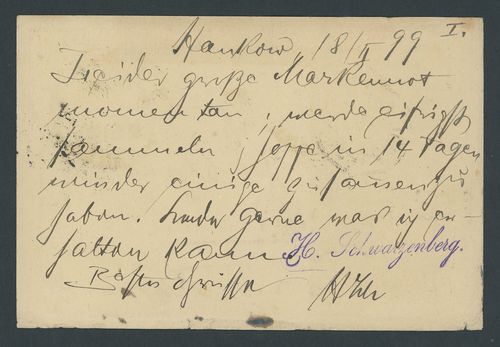 I.
Hankow, 18/II 99
Leider große Markennot
momentan, werde eifrigst
sammeln, hoffe in 14 Tagen
wieder einige zusammenzu
haben. Sende gerne was ich er-
halten kann.
H. Schwarzenberg.
Beste Grüsse